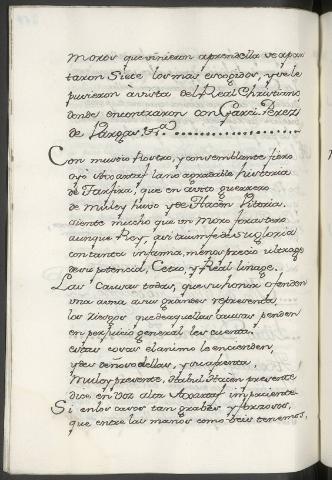 moros que vinieron aprendella se apar
taron Siete los mas escogidos, y se le
pusieron à vista del Real Christiano
donde encontraron con Garci Perez
de Vargas, &ª
Con mustio Rostro, y con semblante fiero
oyò Axartaf la no agradable historia
de Farfira, que en cierto guerrero
de Muley huvo y de Hacèn Vitoria.
siente mucho que un Moro forastero
aunque Rey, assi triunfe de su gloria
con tanta infamia, menosprecio ultrage
de su potencia, Cetro, y Real linage.
Las Causas todas, que su honra ofenden
una a una a sus grandes representa,
los riesgos que de aquellas causas penden
en perjuicio general les cuenta.
estas cosas el animo le encienden,
y de nuevo dellas, y su afrenta.
Muley presente, Habul Hacèn presente
dice en voz alta Axartaf impaciente.
Si en los casos tan grabes y forzosos,
que entre las manos como veis tenemos,